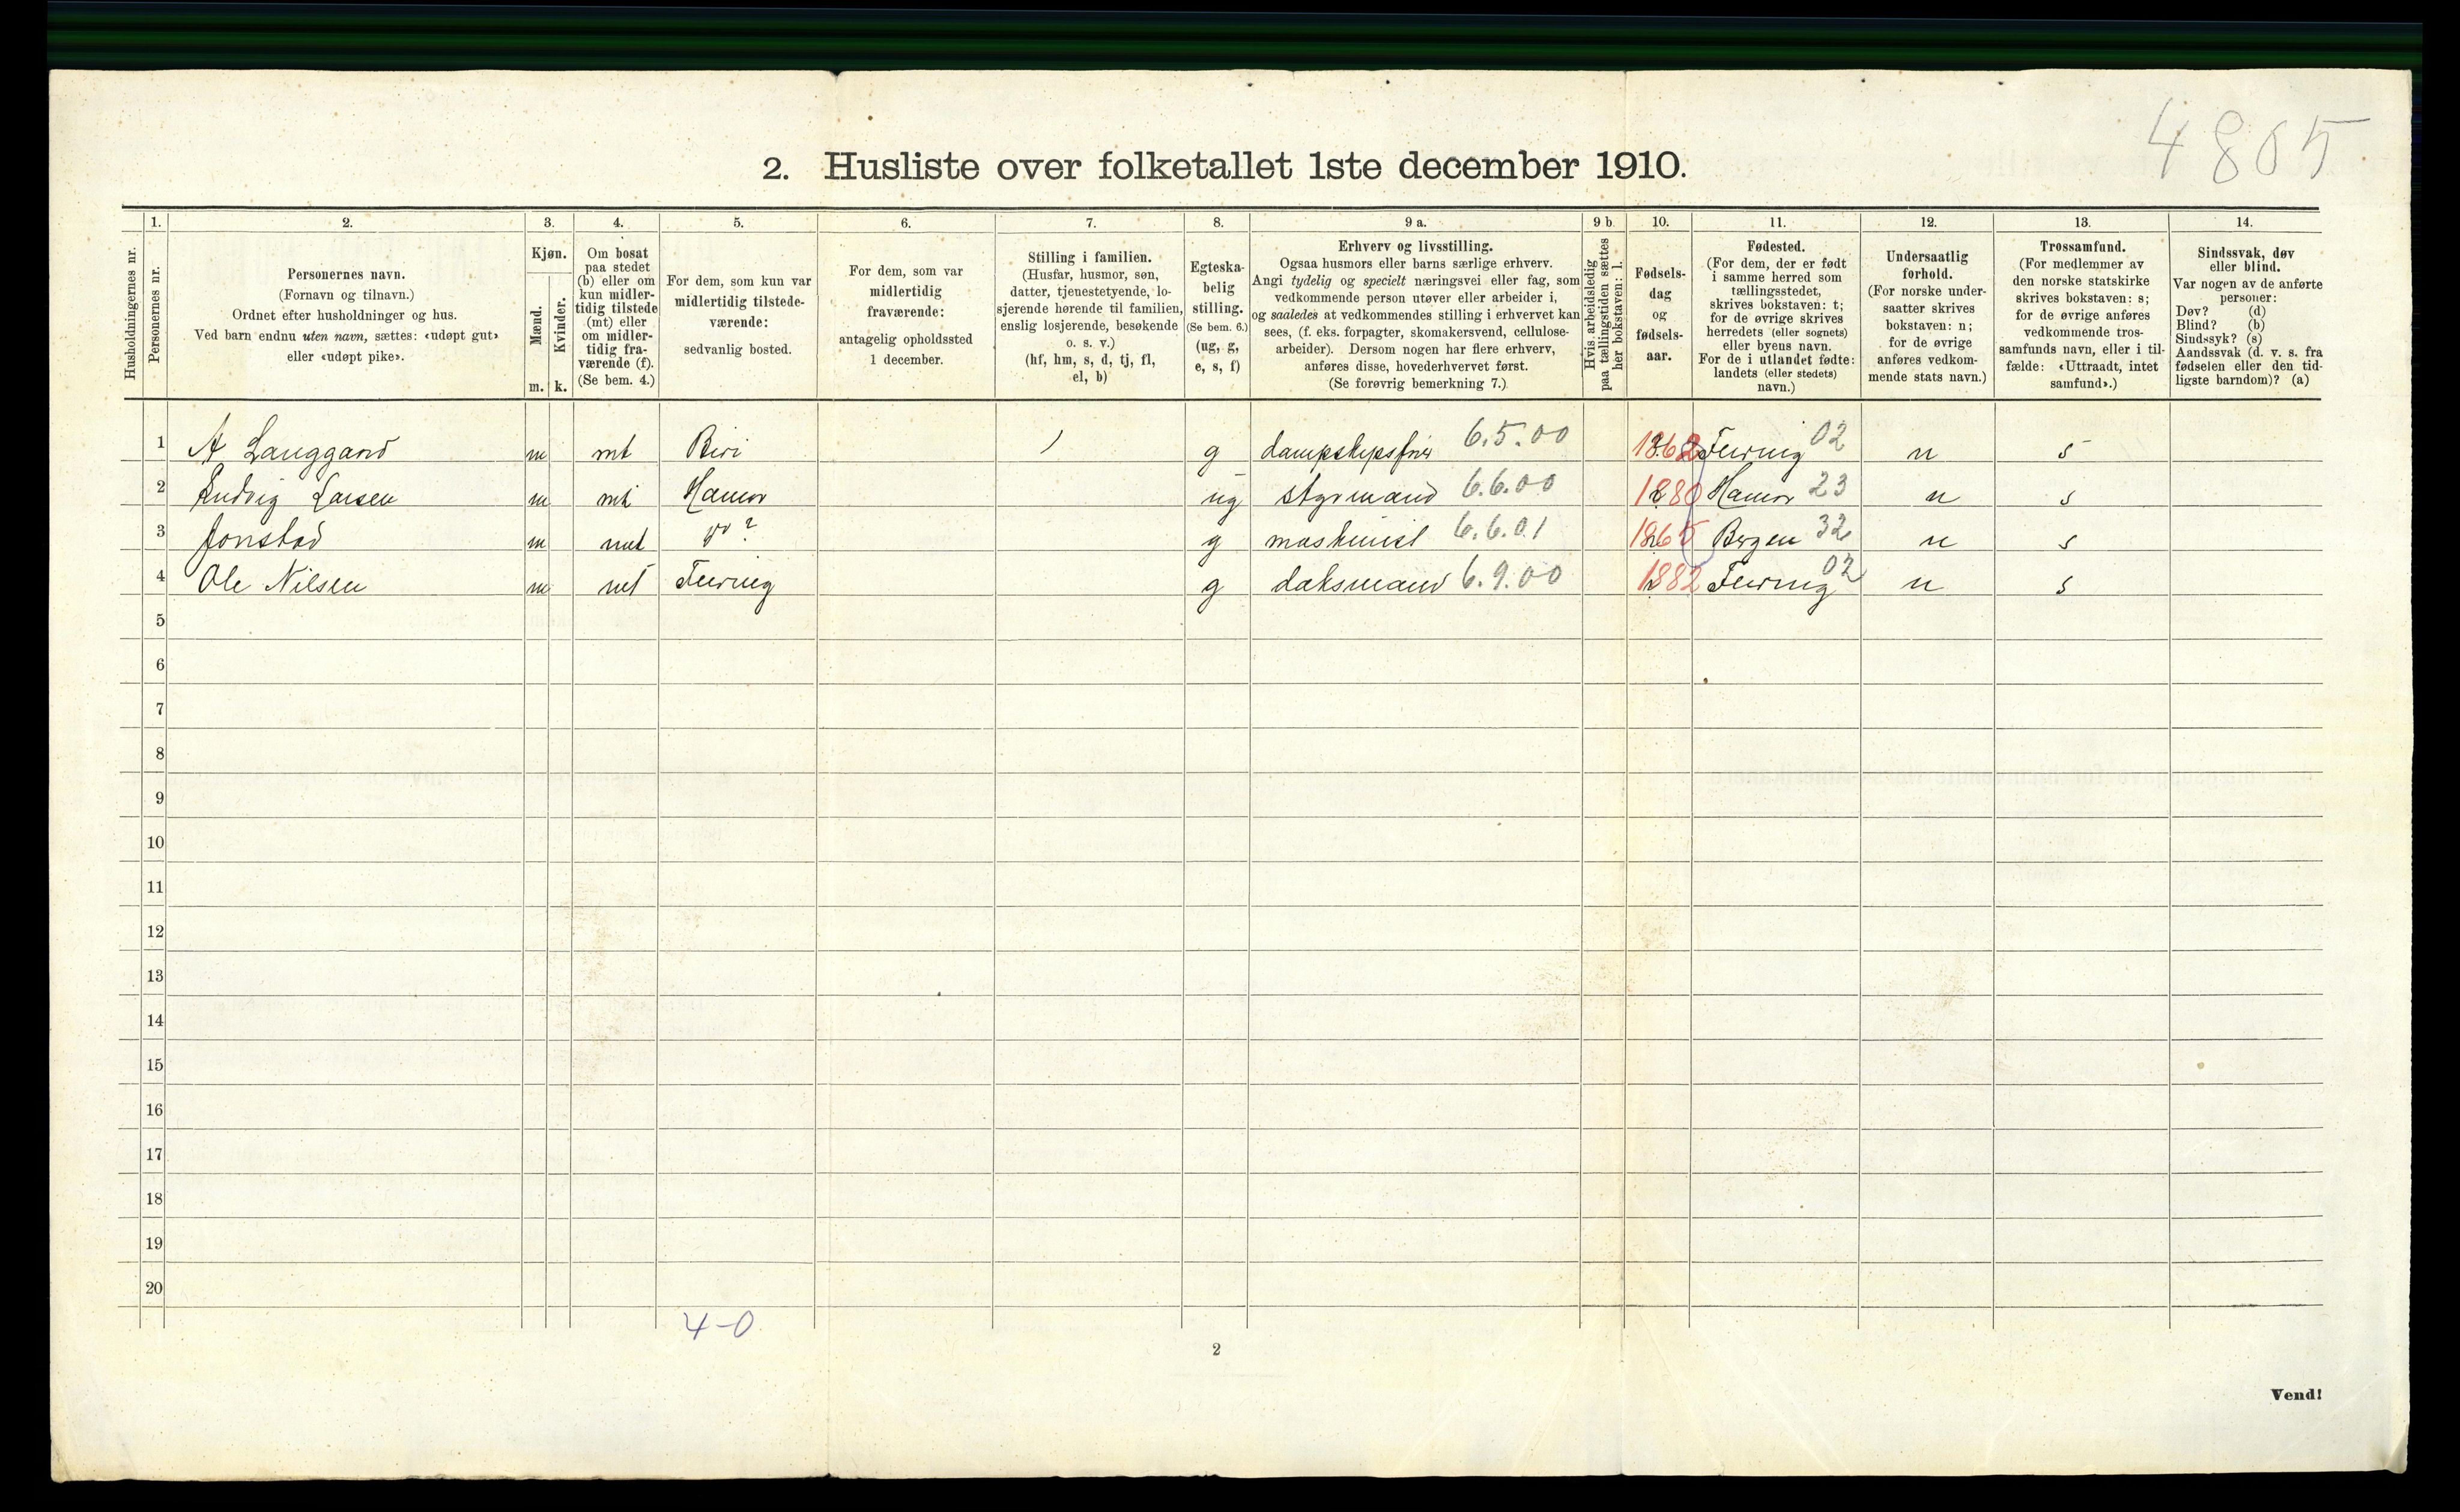 4865
2. Husliste over folketallet 1ste december 1910.
Husholdningernes nr.
1.
Personernes nr.
2.
Personernes navn.
(Fornavn og tilnavn.)
Ordnet efter husholdninger og hus.
Ved barn endnu uten navn, sættes: «udøpt gut»
eller «udøpt pike».
3.
Kjøn.
Mænd.
Kvinder.
m. k.
4.
Om bosat
paa stedet
(b) eller om
kun midler-
tidig tilstede
(mt) eller
om midler-
tidig fra-
værende (f).
(Se bem. 4.)
5.
For dem, som kun var
midlertidig tilstede-
værende:
sedvanlig bosted.
6.
For dem, som var
midlertidig
fraværende:
antagelig opholdssted
1 december.
7.
Stilling i familien.
(Husfar, husmor, søn,
datter, tjenestetyende, lo-
sjerende hørende til familien,
enslig losjerende, besøkende
o. s. v.)
(hf, hm, s, d, tj, fl,
el, b)
8.
Egteska-
belig
stilling.
(Se bem. 6.)
(ug, g,
e, s, f)
9 a.
Erhverv og livsstilling.
Ogsaa husmors eller barns særlige erhverv.
Angi tydelig og specielt næringsvei eller fag, som
vedkommende person utøver eller arbeider i,
og saaledes at vedkommendes stilling i erhvervet kan
sees, (f. eks. forpagter, skomakersvend, cellulose-
arbeider). Dersom nogen har flere erhverv,
anføres disse, hovederhvervet først.
(Se forøvrig bemerkning 7.)
9 b.
Hvis arbeidsledig
paa tællingstiden sættes
her bokstaven: l.
10.
Fødsels-
dag
og
fødsels-
aar.
11.
Fødested.
(For dem, der er født
i samme herred som
tællingsstedet,
skrives bokstaven: t;
for de øvrige skrives
herredets (eller sognets)
eller byens navn.
For de i utlandet fødte:
landets (eller stedets)
navn.)
12.
Undersaatlig
forhold.
(For norske under-
saatter skrives
bokstaven: n;
for de øvrige
anføres vedkom-
mende stats navn.)
13.
Trossamfund.
(For medlemmer av
den norske statskirke
skrives bokstaven: s;
for de øvrige anføres
vedkommende tros-
samfunds navn, eller i til-
fælde: «Uttraadt, intet
samfund».)
14.
Sindssvak, døv
eller blind.
Var nogen av de anførte
personer:
Døv? (d)
Blind? (b)
Sindssyk? (s)
Aandssvak (d. v. s. fra
fødselen eller den tid-
ligste barndom)? (a)
1 A Langgard m mt Biri g dampskipsfører 6.5.00 1862 Feiring 02 n s
2 Ludvig Larsen m mt Hamar ug styrmand 6.6.00 1880 Hamar 23 n s
3 Jonstad m mt ? g maskinist 6.6.01 1865 Bergen 32 n s
4 Ole Nilsen m mt Feiring g daksmand 6.9.00 1882 Feiring 02 n s
5
6
7
8
9
10
11
12
13
14
15
16
17
18
19
20
4-0
2
Vend!